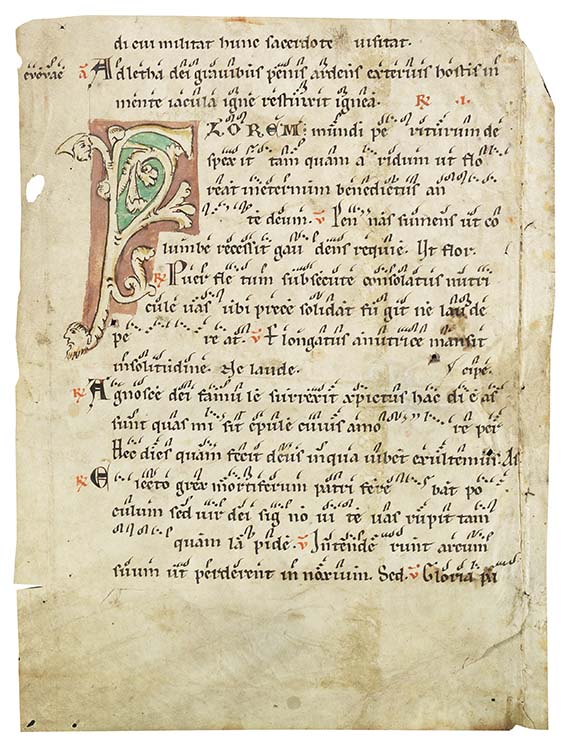 di cui militat hunc sacerdote visitat.
euouae a Ad letha dei gravibus penis ardens exterius hostis in
mente iacula igne restinxit ignea. R̃ .I.
FLOREM mundi pe riturum de
spex it tam quam a ridum ut flo
reat ineternum benedictus an
te deum. V Pen nas sumens ut co
lumbe recessit gau dens requie. Ut flor.
R̃ Puer fle tum subsecute consolatus nutri
cule vas ubi prece solidat fu git ne laude
pe re at. V Elongatus anutrice mansit
insolitudine. Ne laude. cipe.
R̃ Agnosce dei famu le surrexit xpictus hac di e as
sunt quas mi sit epule cuius amo re per
Hec dies quam fecit deus inqua iubet exultemur. As
R̃ E iecto grex mortiferum patri fere bat po
culum sed vir dei sig no vi te vas rupit tam
quam la pide. V Intende runt arcum
suum ut perderent in noxium. Sed. V Gloria pa